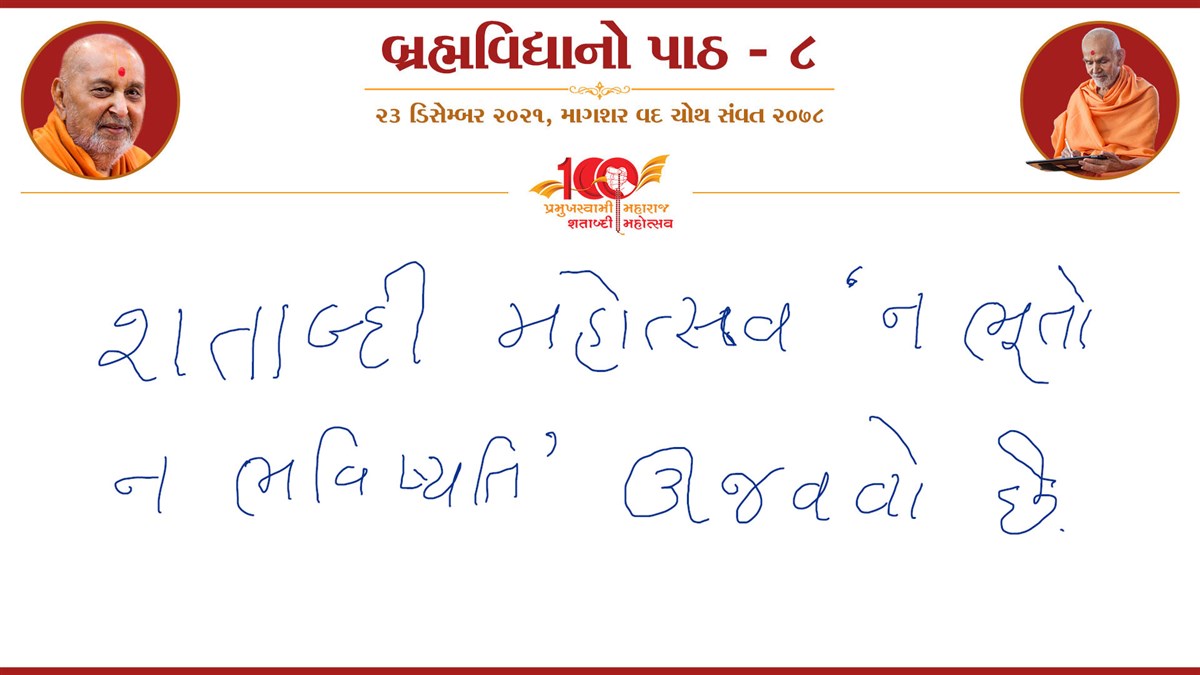 બ્રહ્મવિદ્યાનો પાઠ - ૮
૨૩ ડિસેમ્બર ૨૦૨૧, માગશર વદ ચોથ સંવત ૨૦૭૮
100
પ્રમુખસ્વામી મહારાજ
શતાબ્દી મહોત્સવ
શતાબ્દી મહોત્સવ ‘ન ભૂતો
ન ભવિષ્યતિ’ ઊજવવો છે.